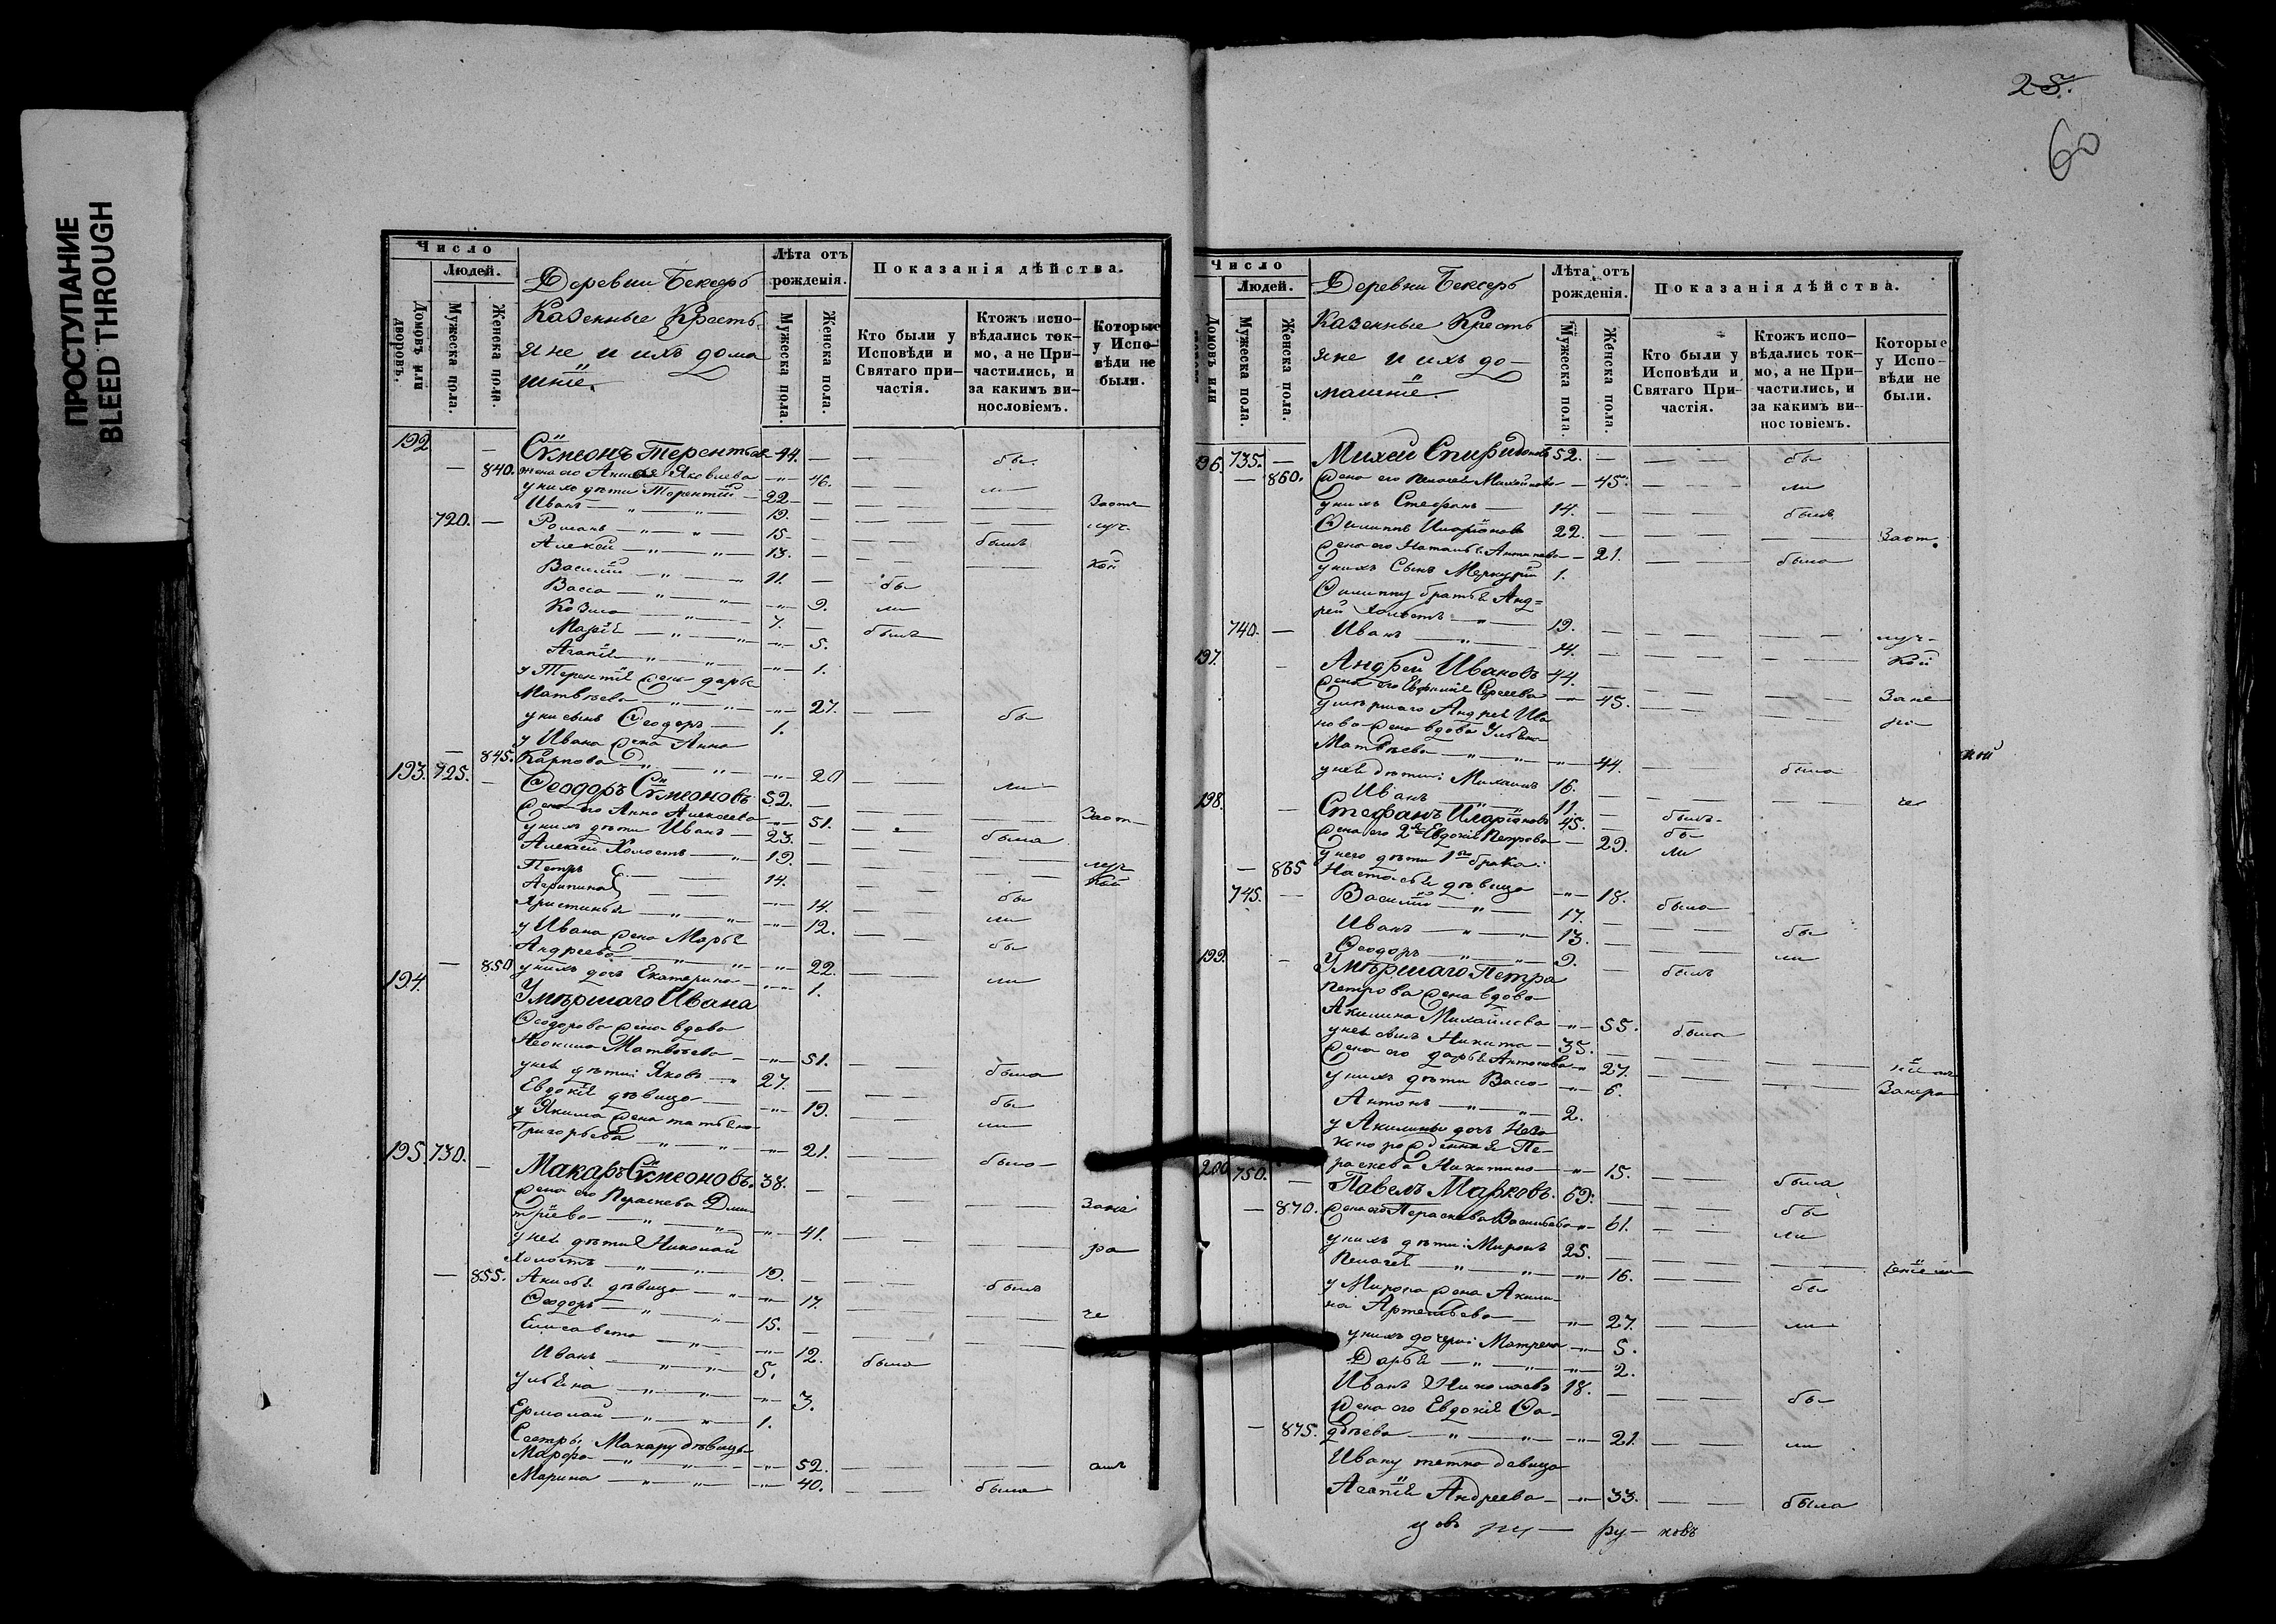 ПРОСТУПАНИЕ
BLEED THROUGH
Число
Людей.
Домовъ или дворовъ.
Мужеска пола.
Женска пола.
Деревни Бексеръ
Казенные Кресть-
яне и ихъ дома
шніе.
Лѣта отъ
рожденія.
Мужеска пола.
Женска пола.
Показанія дѣйства.
Кто были у
Исповѣди и
Святаго при-
частія.
Ктожъ испо-
вѣдались ток-
мо, а не При-
частились, и
за какимъ ви-
нословіемъ.
Которые
у Испо-
вѣди не
были.
192 — Сѵмеонъ Терентьевъ 44. — бы
— 840. жена его Яковлева —„— 46. — ли
у нихъ дѣти Терентій — 22 — Заот
Иванъ —„— 19.
720. — Романъ —„— 15 — былъ луч-
Алексѣй —„— 13. — кой
Василій —„— 11. — бы
Васса —„— 9. ли
Козма —„— 7. — былъ
Марія —„— 5.
Агапія —„— 1.
у Терентія жена Дарья
Матвѣева —„— 27. — бы
у ни сынъ Ѳеодоръ — 1.
у Ивана жена Анна
— 845. Карпова —„— 20 — ли
193. 725. — Ѳеодоръ Сѵмеоновъ 52. —
жена его Анна Алексѣева —„— 51. — Заот-
у нихъ дѣти Иванъ — 23. — была
Алексѣй Холостъ —„— 19. —
Петръ — 14. — луч
Агрипина — 14. — кой
Христинья —„— 12. — бы
у Ивана жена Марья — ли
Андреева —„— 22. — бы
— 850 у нихъ дочь Екатерина —„— 1. — ли
194. Умершаго Ивана
Ѳеодорова жена вдова
Матвѣева —„— 51.
у ней дѣти: Яковъ —„ 27. — была
Евдокія дѣвица —„— 19. — бы
у Якима жена Татьяна — ли
Григорьева —„— 21.
195. 730. — Макаръ Сѵмеоновъ. 38. — была
жена его Параскева Дми-
тріева —„— 41. — Зане
у ней дѣти Николай — ра
Холостъ —„— 19. —
— 855. дѣвица —„— 17. — былъ
Ѳеодоръ —„— 15. — че
Елисавета —„— 12.
Иванъ —„— 5. была
Ульяна —„— 3.
Ермолай —„— 1.
Сестры Макару дѣвицы
Марѳа —„— 52.
Марина —„— 40. — была
25.
60
Число
Людей.
Домовъ или
Мужеска пола.
Женска пола.
Деревни Бексеръ
Казенные Кресть
яне и ихъ до-
машніе.
Лѣта отъ
рожденія.
Мужеска пола.
Женска пола.
Показанія дѣйства.
Кто были у
Исповѣди и
Святаго При-
частія.
Ктожъ испо-
вѣдались ток-
мо, а не При-
частились, и
за какимъ ви-
нословіемъ.
Которые
у Испо-
вѣди не
были.
96. 735. — Михей Спиридоновъ 52. — бы
— 860. жена его Пелагея Михайлова — 45. — ли
у нихъ Стефанъ — 14. — былъ
Филиппъ Иларіоновъ 22. —
жена его Наталья Антипова — 21. — Заот.
у нихъ Сынъ Меркурій 1. — была
Филиппу братья Анд-
рей Холостъ —„— 19. —
740. — Иванъ —„— 14. — луч-
197. — Андрей Ивановъ 44. — кой
жена его Евфимія Сергеева —„— 45. — Зане
умершаго Андрея Ива-
нова жена вдова Ульяна
Матвѣева —„— 44. — кой
у ней дѣти: Михаилъ 16. — была
Иванъ 11. — че
198. — Стефанъ Иларіоновъ 45. — былъ
жена его 2я Евдокія Петрова — 29. бы
у него дѣти 1го брака: ли
— 865 Настасья дѣвица —„— 18.
745. — Василій —„— 17. — была
Иванъ —„— 13. — бы
Ѳеодоръ —„— 9. — ли
199. — Умершаго Петра былъ
Петрова жена вдова
Акилина Михайлова —„— 55. была
у ней сынъ Никита — 35. —
жена его Дарья Антонова —„ 27.
у нихъ дѣти Васса —„— 6. Занера
Антонъ —„— 2.
у Акилины дочь Неза-
коно рожденная Па-
раскева Никитина —„— 15. — была
200 750. — Павелъ Марковъ. 69. — бы
— 870. жена его Параскева Васильева —„— 61. — ли
у нихъ дѣти: Миронъ 25. —
Пелагея —„— 16. — бы
у Мирона жена Акили-
на Артемьева —„— 27. — ли
у нихъ дочери: Матрена —„— 5.
Дарья —„— 2.
Иванъ Николаевъ 18. — бы
жена его Евдокія Ѳа-
— 875. дѣева —„— 21. — ли
Ивану тетка девица
Агапія Андреева —„— 33. — была